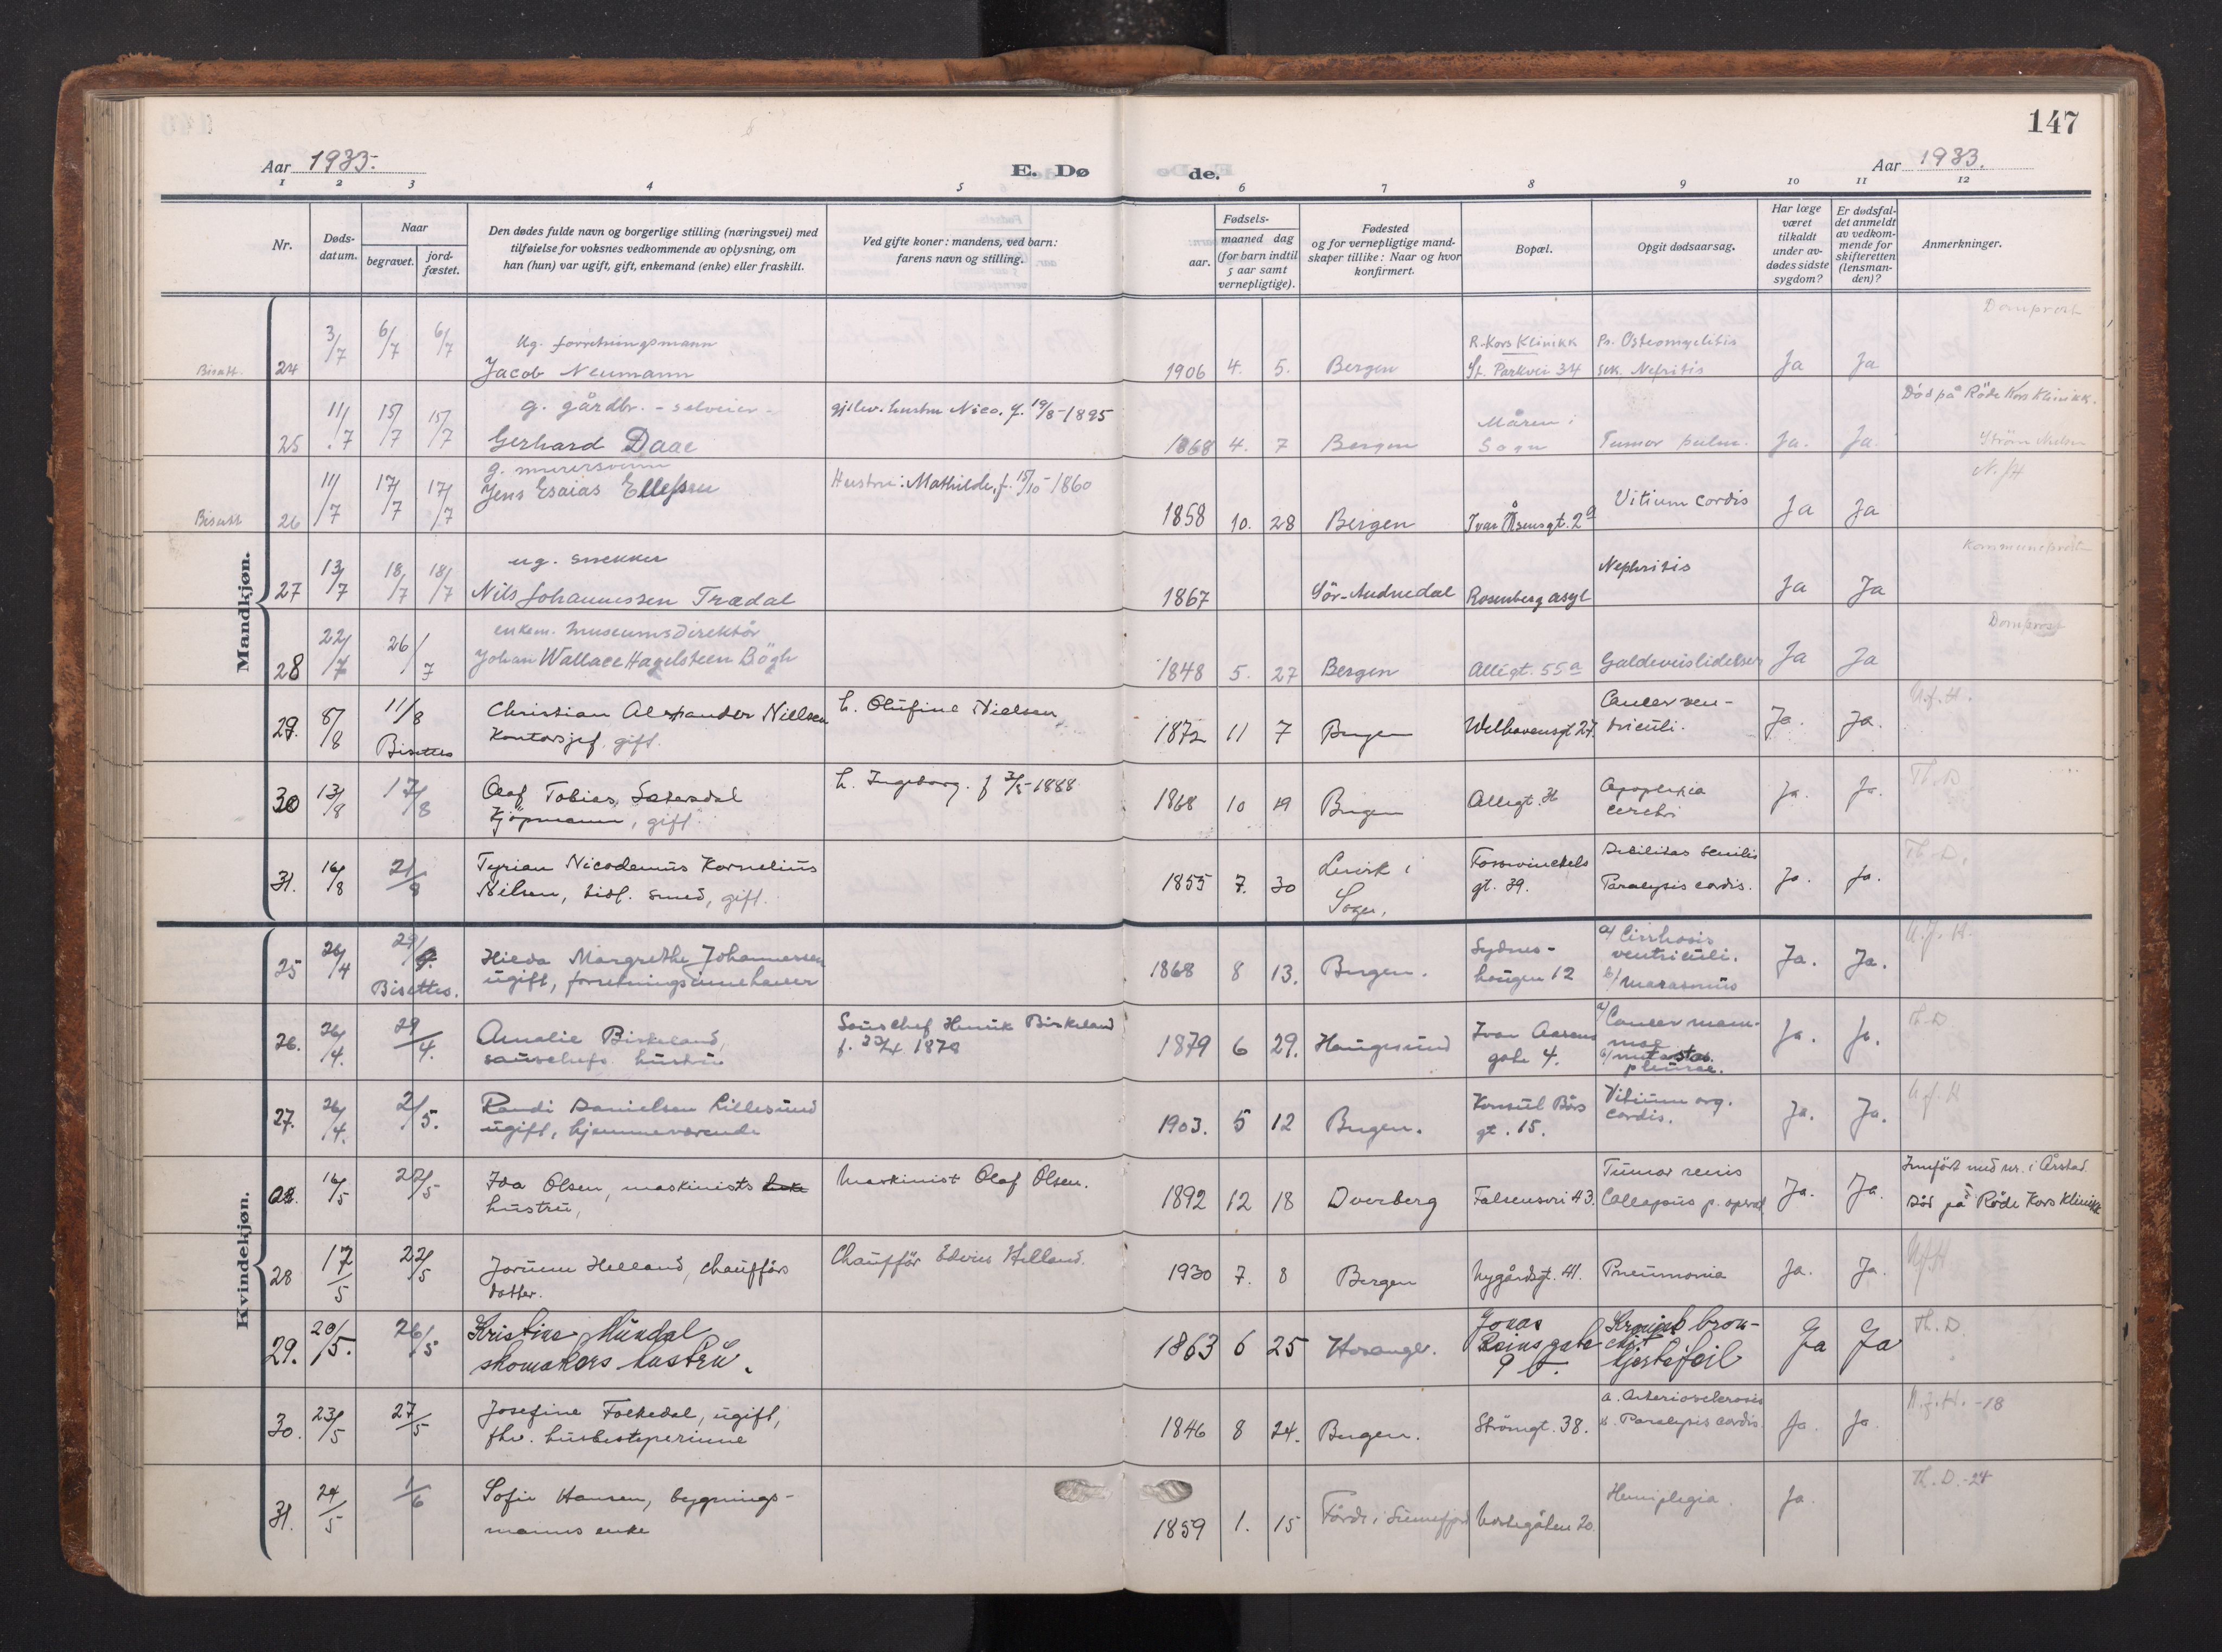 147
Aar 1933.
E. Dø
de.
Aar 1933.
1 2 3 4 5 6 7 8 9 10 11 12
Nr.
Døds-
datum.
Naar
begravet.
jord-
fæstet.
Den dødes fulde navn og borgerlige stilling (næringsvei) med
tilføielse for voksnes vedkommende av oplysning, om
han (hun) var ugift, gift, enkemand (enke) eller fraskilt.
Ved gifte koner: mandens, ved barn:
farens navn og stilling.
Fødsels-
aar.
maaned dag
(for barn indtil
5 aar samt
vernepligtige).
Fødested
og for vernepligtige mand-
skaper tillike: Naar og hvor
konfirmert.
Bopæl.
Opgit dødsaarsag.
Har læge
været
tilkaldt
under av-
dødes sidste
sygdom?
Er dødsfal-
det anmeldt
av vedkom-
mende for
skifteretten
(lensman-
den)?
Anmerkninger.
Mandkjøn.
Bisatt. 24 3/7 6/7 6/7 Ug. forretningsmann
Jacob Neumann
1906 4. 5. Bergen
R. Kors Klinikk
St. Parkvei 34
Pr. Osteomyelitis
sek. Nefritis
Ja Ja Domprost
25 11/7 15/7 15/7 g. gårdbr. - selveier -
Gerhard Daae
gjilev. hustru Nico. f. 19/8-1895
1868 4. 7 Bergen
Måren i
Sogn
Tumor pulm. Ja. Ja.
Död på Röde Kors Klinikk.
Ström Nielsen
Bisatt 26 11/7 17/7 17/7 g. murersvenn
Jens Esaias Ellefsen
Hustru: Mathilde, f. 15/10-1860
1858 10. 28 Bergen Ivar Åsensgt. 2a Vitium cordis Ja Ja N. H
27 13/7 18/7 18/7 ug. snekker
Nils Johannessen Trædal
1867 Sör-Audnedal Rosenberg asyl Nephritis Ja Ja Kommuneprest
28 22/7 26/7 enkem. Museumsdirektör
Johan Wallace Hagelsteen Bögh
1848 5. 27 Bergen Allégt. 55a Galdeveislidelser Ja Ja Domprost
29. 8/8 11/8
Bisettes
Christian Alexander Nielsen
Kontorsjef, gift.
h. Olufine Nielsen
1872 11 7 Bergen Welhavensgt 27.
Cancer ven-
triculi.
Ja. Ja. U.f.H.
30 13/8 17/8 Olaf Tobias Sætersdal
Kjöpmann, gift.
h. Ingeborg. f 3/5-1888
1868 10 19 Bergen Allégt.
Apoplexia
cerebri
Ja. Ja. Th. D
31. 16/8 21/8 Tyrian Nicodemus Kornelius
Nilsen, tidl. smed, gift.
1855 7. 30
Leirik i
Sogn,
Fosswinckels
gt. 39.
Debilitas senilis
Paralysis cordis.
Ja. Ja. Th. D.
Kvindekjøn.
25 26/4 29/4.
Bisettes.
Hilda Margrethe Johannessen
ugift, forretningsinnehaver
1868 8 13. Bergen.
Sydnes-
haugen 12
a/ Cirrhosis
ventriculi.
b/ marasmus
Ja. Ja. U.f. H.
26. 26/4. 29/4. Amalie Birkeland,
sauschefs hustru
Sauschef Henrik Birkeland
1879 6 29. Haugesund
Ivar Aasens
gate 4.
a/ Cancer mam-
mae
b/ metastas.
pleurae.
Ja. Ja. Th. D
27. 26/4. 2/5. Randi Danielsen Lillesund
ugift, hjemmeværende
1903. 5 12 Bergen.
Konsul Börs
gt. 15.
Vitium org.
cordis.
Ja. Ja. U.f. H
28. 16/5 22/5 Ida Olsen, maskinists
hustru,
Maskinist Olaf Olsen.
1892 12 18 Dverberg Falsensvei 43.
Tumor renis
Collapsus p. operat
Ja. Ja.
Innfört med nr. i Årstad.
Död på Röde Kors Klinikk
28 17/5 22/5 Jorunn Helland, chaufförs
datter.
Chauffför Edvin Helland.
1930 7. 8 Bergen Nygårdsgt. 41. Pneumonia Ja. Ja. UfH
29. 20/5. 26/5 Kristine Mundal
skomakers hustru.
1863 6 25 Hosanger.
Jonas
Reinsgate
9
Kronisk bron-
chit
hjertefeil
Ja Ja Th. D.
30. 23/5 27/5 Josefine Folkedal, ugift,
fhv. husbestyrerinne
1846 8 24. Bergen. Strömgt. 38.
a. Arteriosclerosis
b. Paralysis cordis.
Ja. Ja. U.f.H. -18
31. 24/5 1/6 Sofie Hansen, bygnings-
manns enke
1859 1. 15 Förde i Sunnfjord 20. Hemiplegia. Ja. Th. D. -24